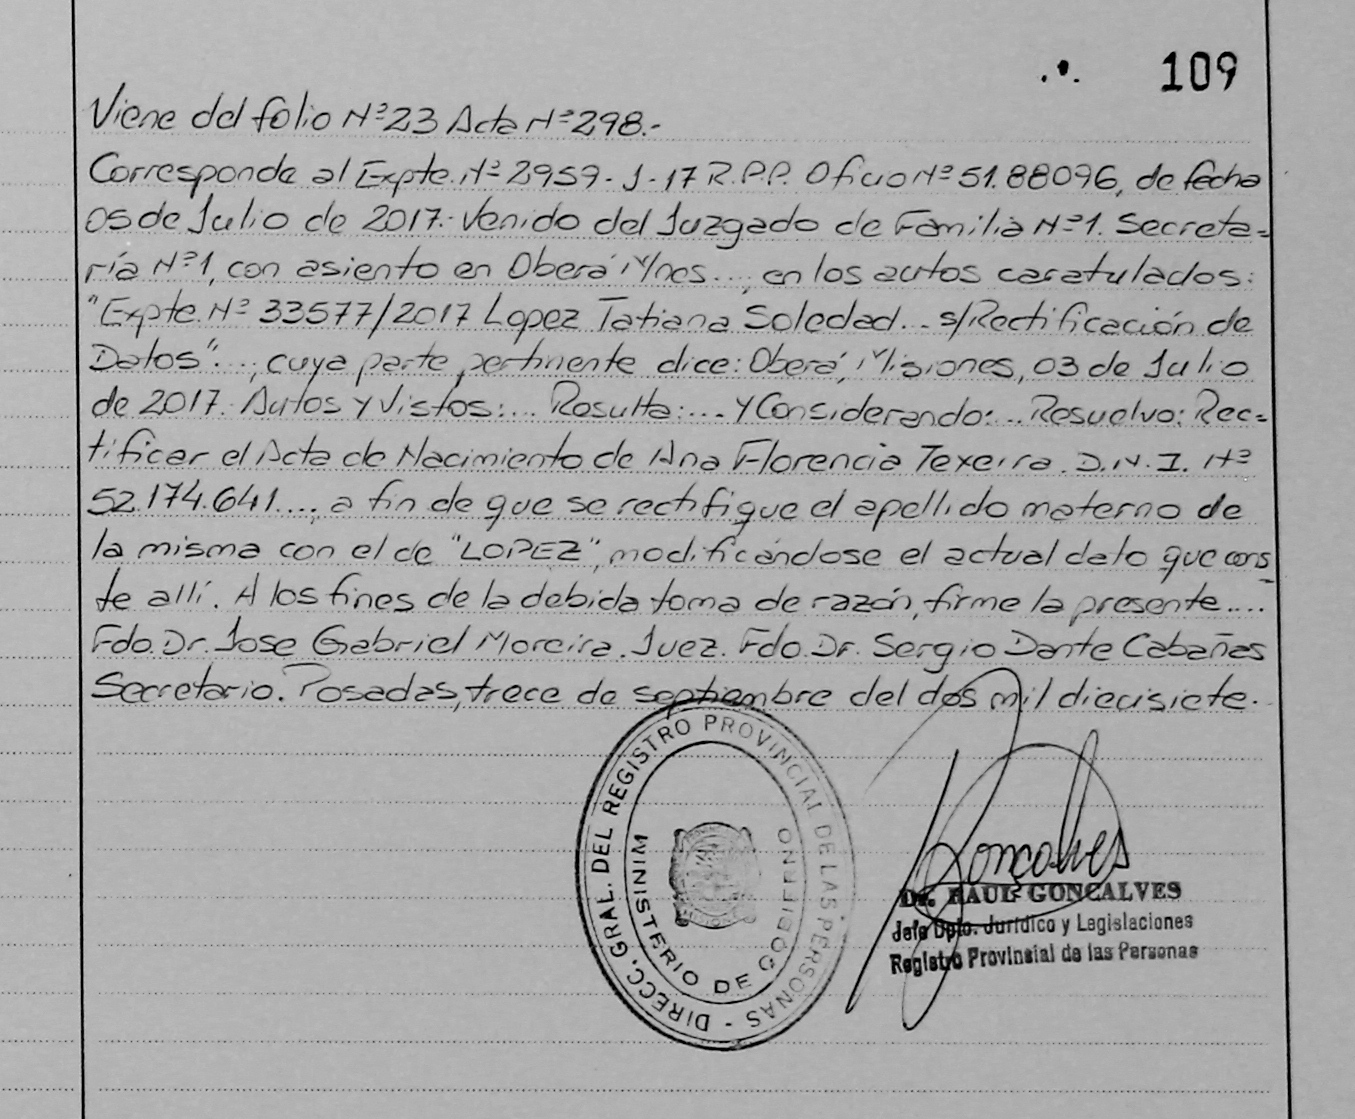 109
Viene del folio Nº23 Acta Nº298.-
Corresponde al Expte. Nº 2959-J-17 R.P.P. Oficio Nº 51.88096, de fecha
05 de Julio de 2017. Venido del Juzgado de Familia Nº1. Secreta=
ría Nº1, con asiento en Oberá Mnes..., en los autos caratulados:
"Expte. Nº 33577/2017 Lopez Tatiana Soledad... s/Rectificación de
Datos"..., cuya parte pertinente dice: Oberá, Misiones, 03 de Julio
de 2017. Autos y Vistos:... Resulta:... Y Considerando:... Resuelvo: Rec=
tificar el Acta de Nacimiento de Ana Florencia Texeira. D.N.I. Nº
52.174.641..., a fin de que se rectifique el apellido materno de
la misma con el de "LOPEZ", modificándose el actual dato que cons
te allí. A los fines de la debida toma de razón, firme la presente....
Fdo. Dr. Jose Gabriel Moreira. Juez. Fdo. Dr. Sergio Dante Cabañas
Secretario. Posadas, trece de septiembre del dos mil diecisiete.
DIRECC. GRAL. DEL REGISTRO PROVINCIAL DE LAS PERSONAS -
MINISTERIO DE GOBIERNO
Goncalves
Dr. RAUL GONCALVES
Jefe Dpto. Jurídico y Legislaciones
Registro Provincial de las Personas